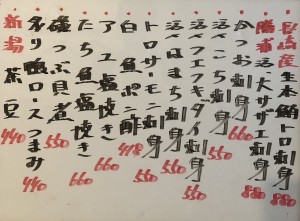 長崎産生本鮪トロ刺身 880
勝浦活大サザエ刺身 880
かつお刺身 660
活〆こち刺身
活〆はまち刺身 550
トロサーモン刺身 550
白魚ポン酢 418
アユ塩焼き 660
たち魚塩焼き 660
磯つぶ貝煮 550
炙り鴨ロースつまみ 440
新潟茶豆 440